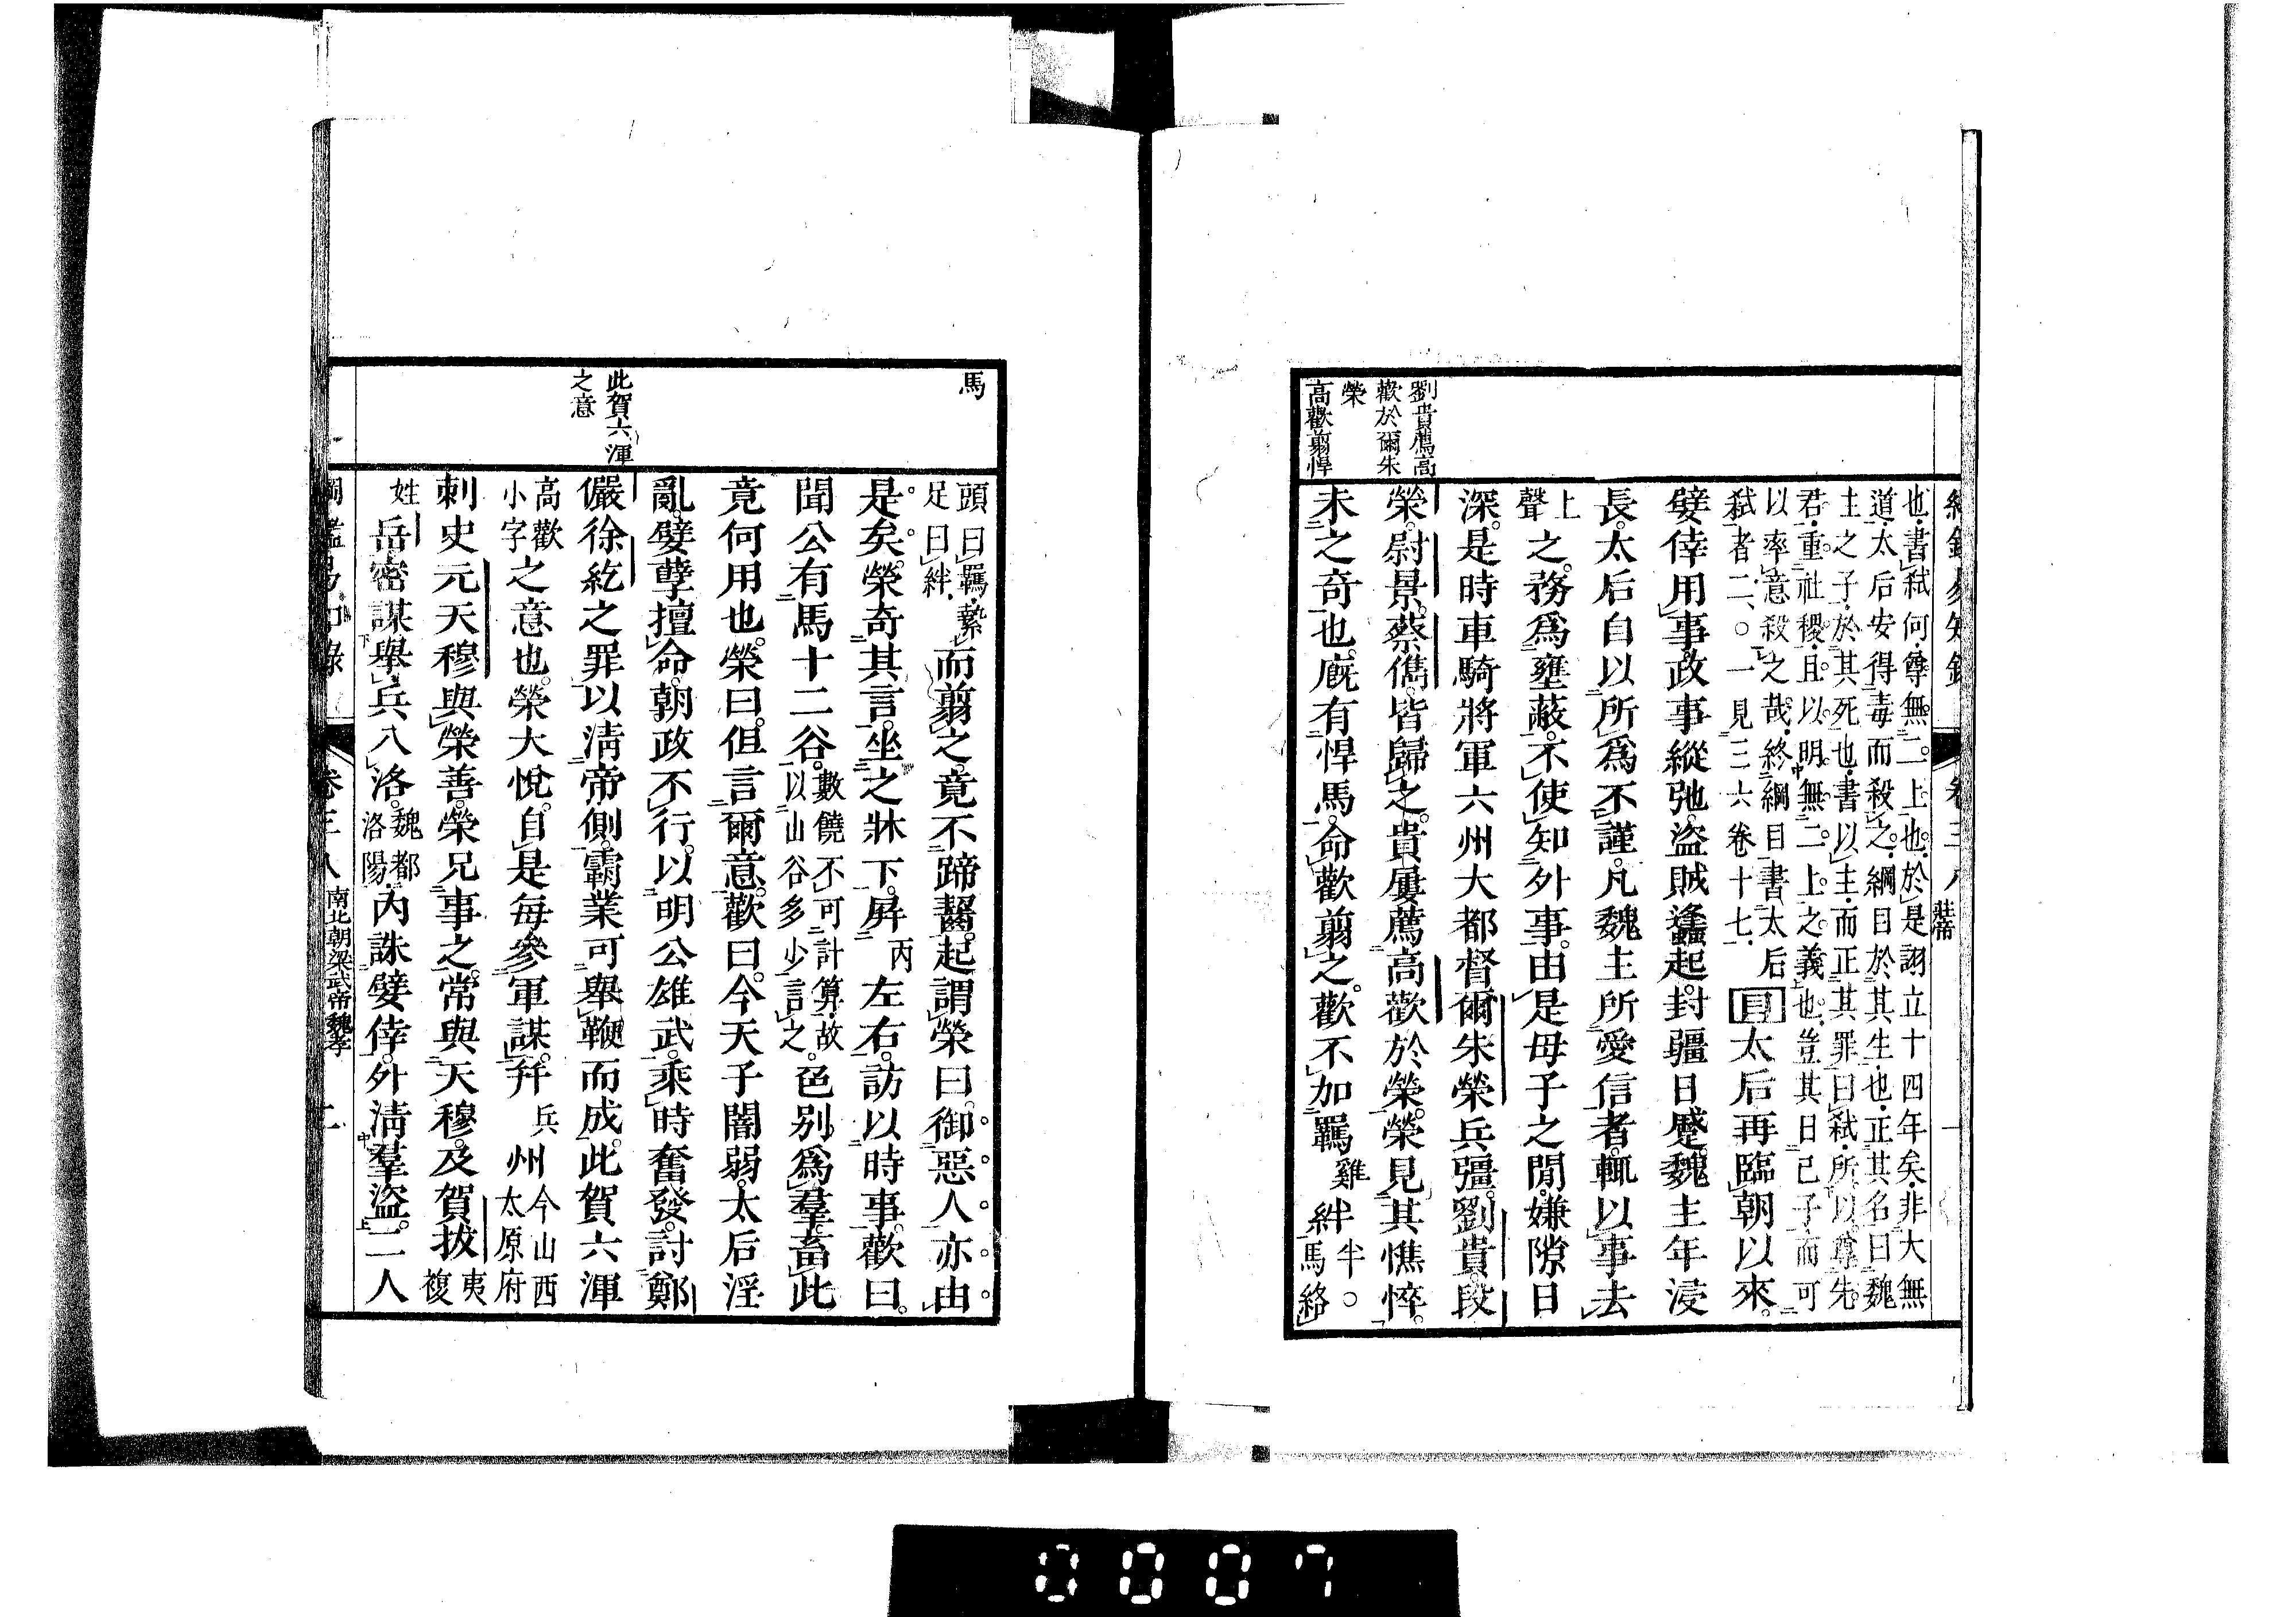 劉貴薦高
歡於爾朱
榮
高歡翦悍
也書弑何尊無二上也於是詡立十四年矣非大無
道太后安得毒而殺之綱目於其生也正其名曰魏
主之子於其死也書以主而正其罪曰弑所以尊先
君重社稷且以明無二上之義也豈其曰已子而可
以率意殺之哉終綱目書太后
弑者二○一見三六卷十七
目太后再臨朝以來
嬖倖用事政事縱弛盜賊蠭起封疆日蹙魏主年浸
長太后自以所爲不謹凡魏主所愛信者輒以事去
上聲之務爲壅蔽不使知外事由是母子之閒嫌隙日
深是時車騎將軍六州大都督爾朱榮兵彊劉貴段
榮尉景蔡儁皆歸之貴屢薦高歡於榮榮見其憔悴
未之奇也廐有悍馬命歡翦之歡不加羈雞絆半○馬絡
馬
此賀六渾
之意
頭曰羈縶足曰絆而翦之竟不蹄齧起謂榮曰御惡人亦由
是矣榮奇其言坐之牀下屏丙左右訪以時事歡曰
聞公有馬十二谷數饒不可計算故以山谷多少言之色别爲羣畜此
竟何用也榮曰但言爾意歡曰今天子闇弱太后淫
亂嬖孽擅命朝政不行以明公雄武乘時奮發討鄭
儼徐紇之罪以淸帝側霸業可舉鞭而成此賀六渾
高歡小字之意也榮大悅自是每參軍謀幷兵州今山西太原府
刺史元天穆與榮善榮兄事之常與天穆及賀拔夷複
姓岳密謀舉兵入洛魏都洛陽內誅嬖倖外淸羣盜二人
卷三八 南北朝梁武帝魏孝 二